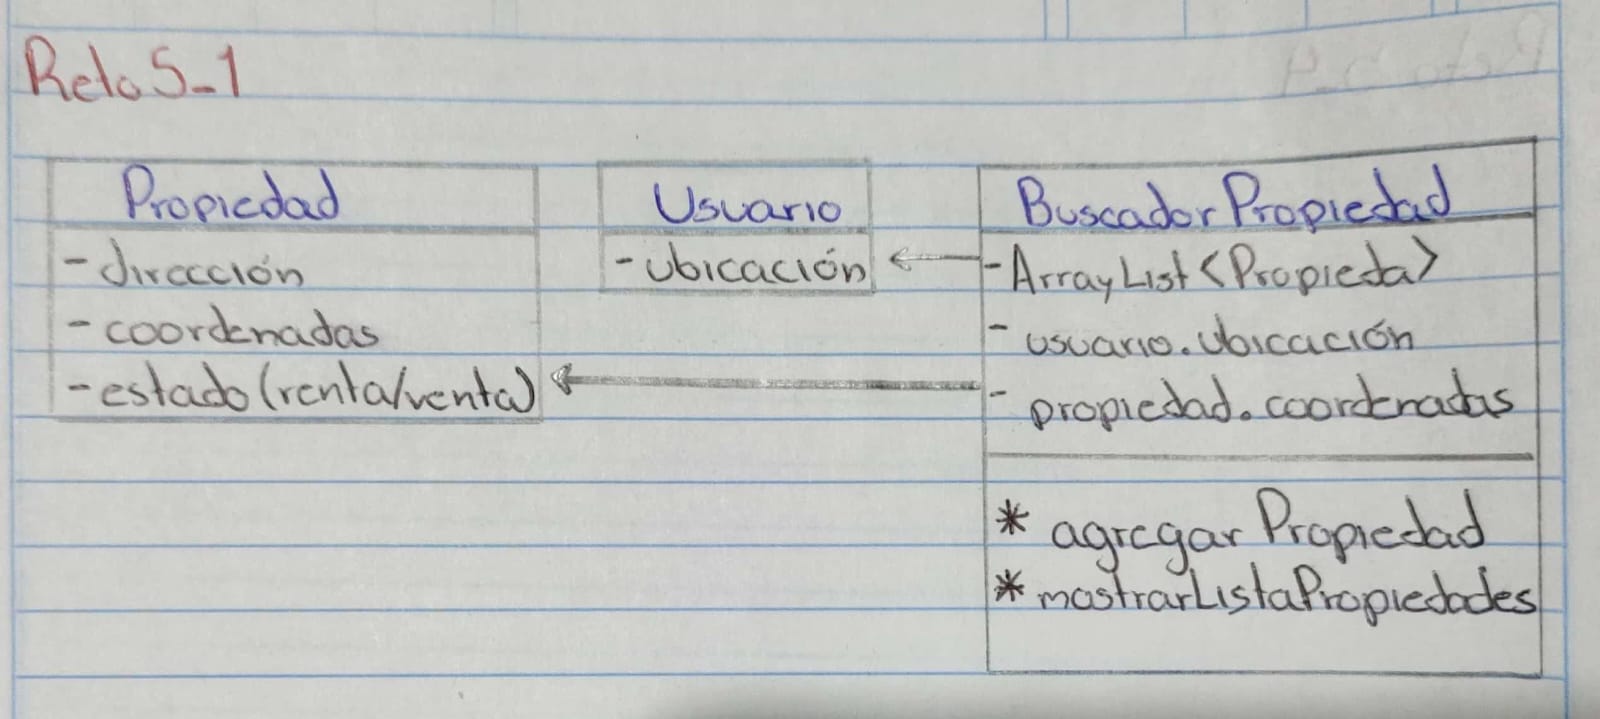 Reto 5-1
Propiedad
- dirección
- coordenadas
- estado (renta/venta)
Usuario
- ubicación
Buscador Propiedad
- ArrayList <Propieda>
- usuario.ubicación
- propiedad.coordenadas
* agregar Propiedad
* mostrarListaPropiedades